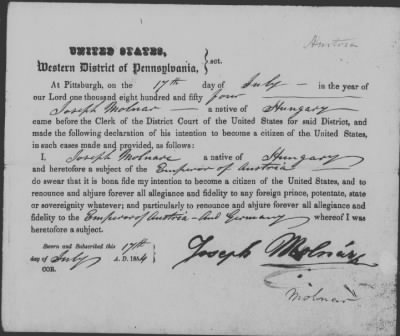 Austria
UNITED STATES,
Western District of Pennsylvania, } sct.
At Pittsburgh, on the 17th day of July in the year of
our Lord one thousand eight hundred and fifty four
Joseph Molnar a native of Hungary
came before the Clerk of the District Court of the United States for said District, and
made the following declaration of his intention to become a citizen of the United States,
in such cases made and provided, as follows:
I, Joseph Molnar a native of Hungary
and heretofore a subject of the Emperor of Austria
do swear that it is bona fide my intention to become a citizen of the United States, and to
renounce and abjure forever all allegiance and fidelity to any foreign prince, potentate, state
or sovereignity whatever; and particularly to renounce and abjure forever all allegiance and
fidelity to the Emperor of Austria and Germany whereof I was
heretofore a subject.
Sworn and Subscribed this 17th
day of July A. D. 1854
COR.
Joseph Molnár
Molnar